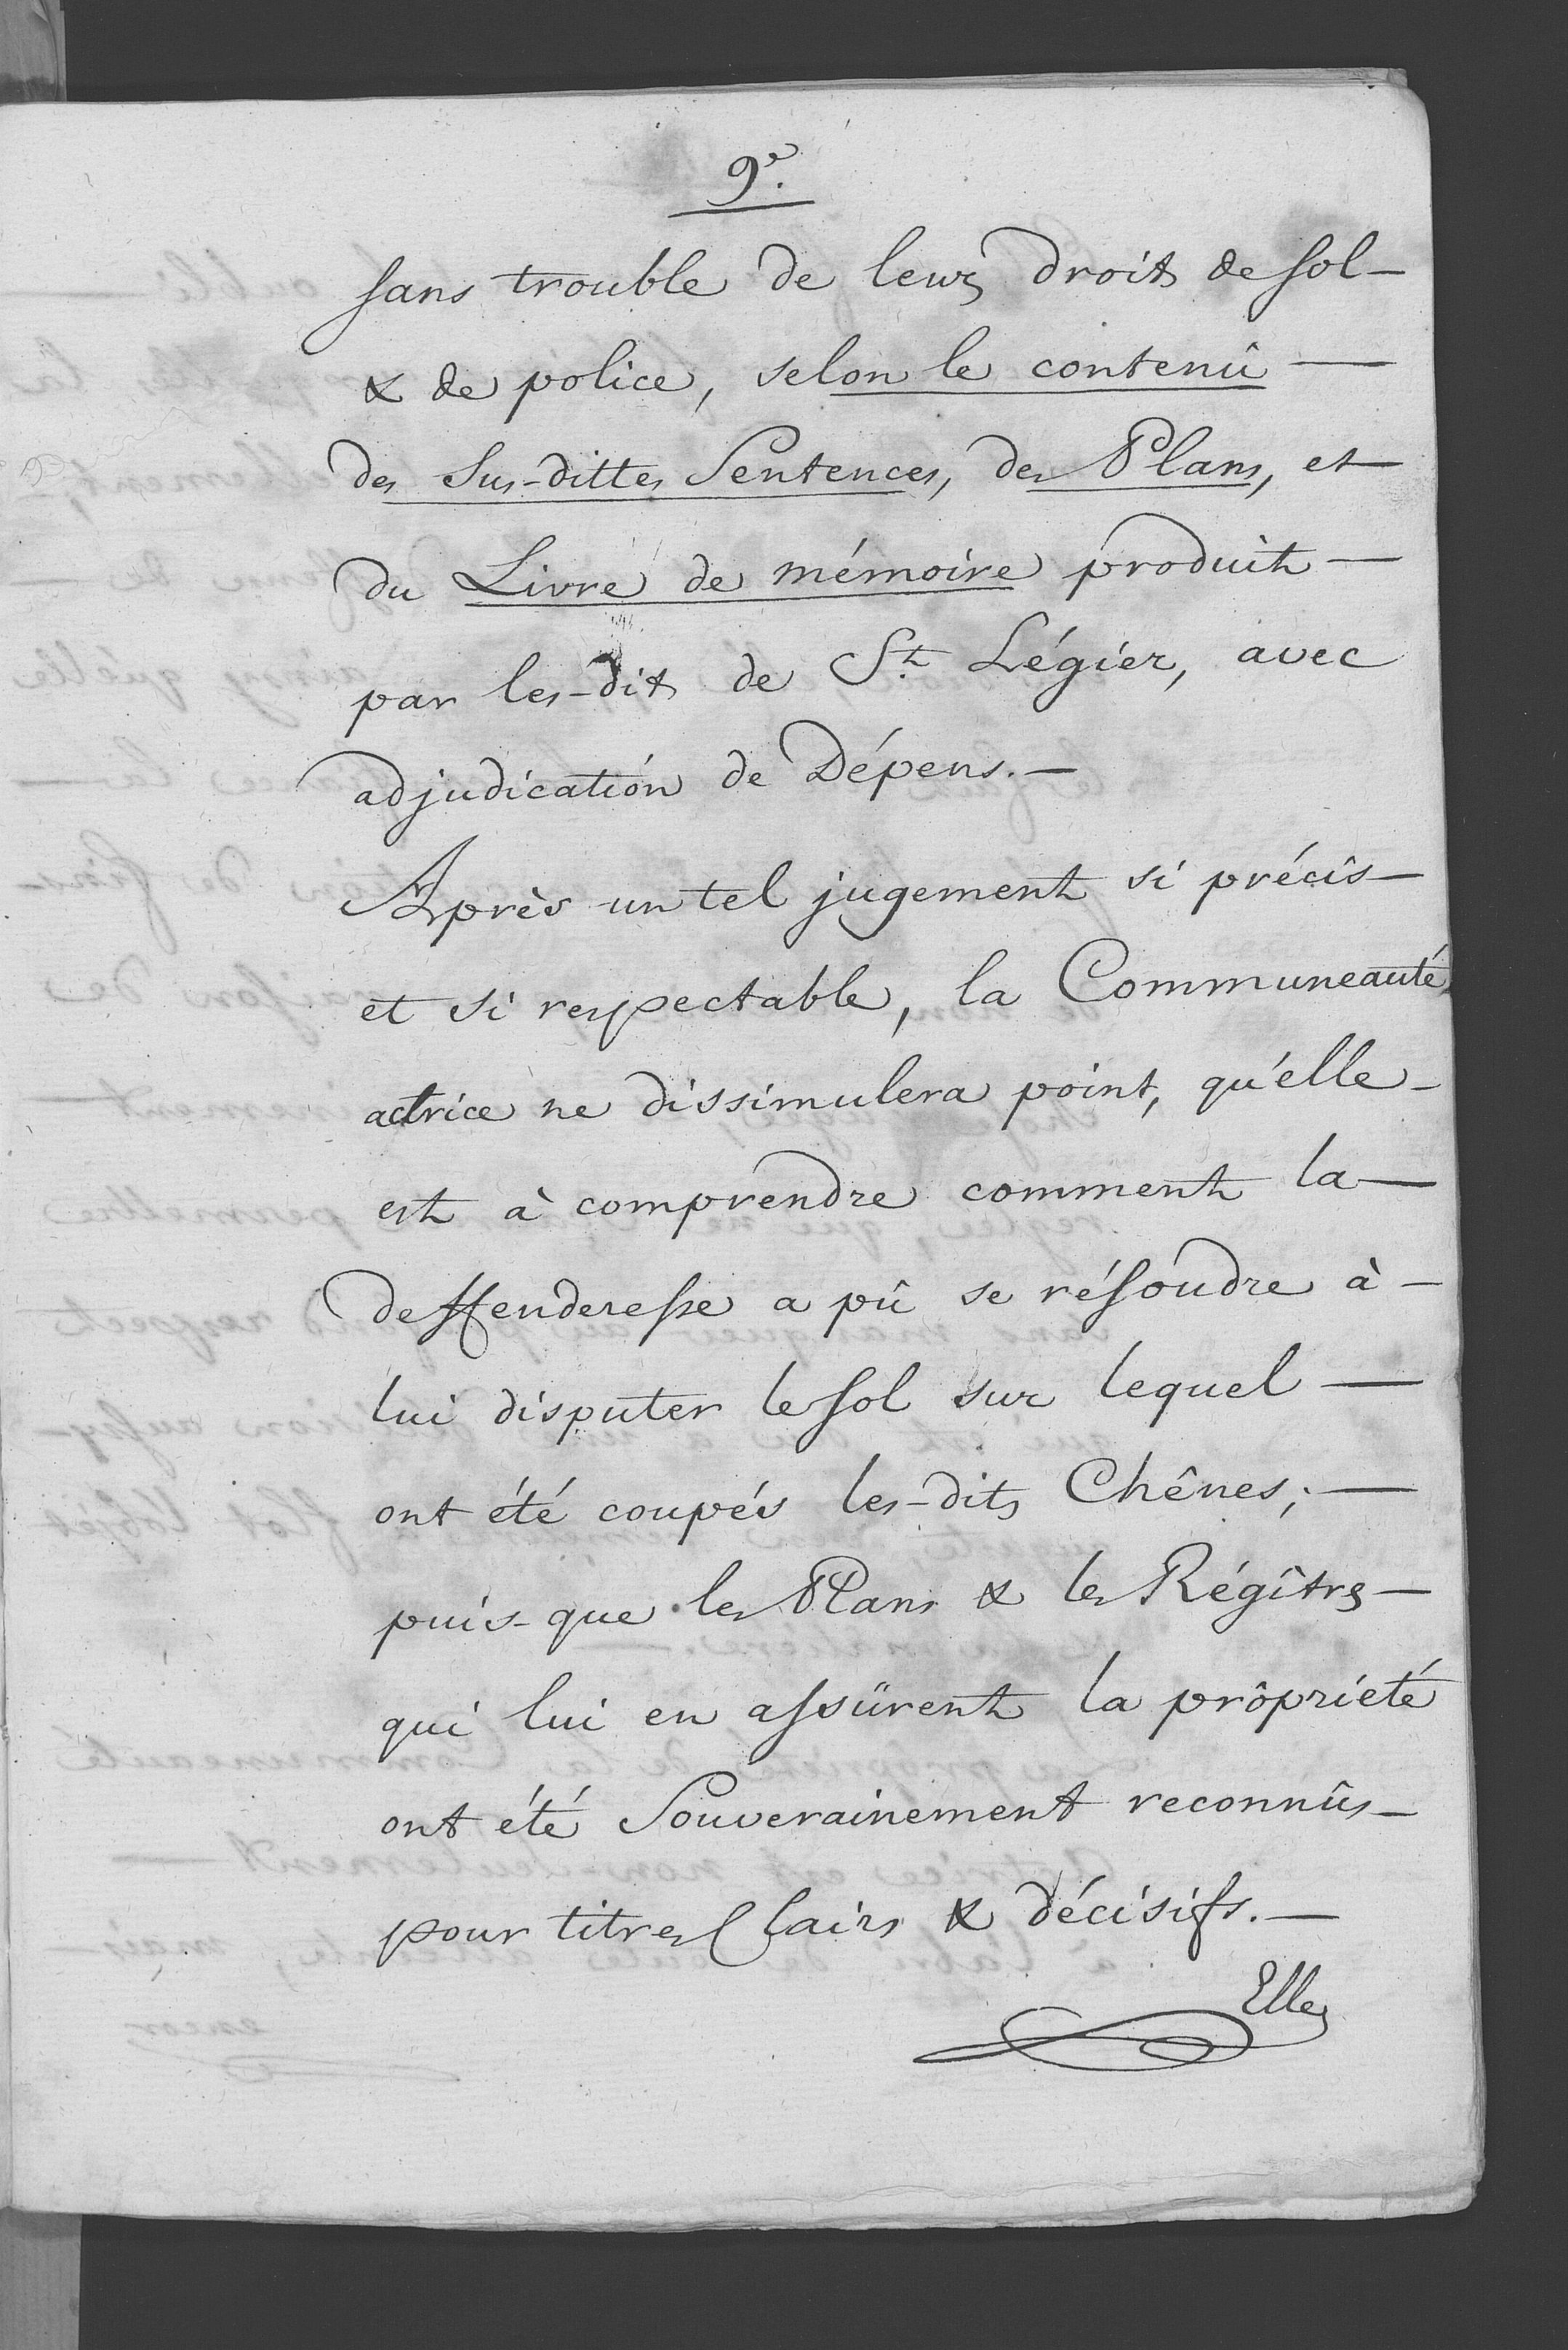 9.e
sans trouble de leurs droits de sol —
& de police, selon le contenû —
des Sus-dittes Sentences, des Plans, et
du Livre de mémoire produit —
par les-dits de St. Légier, avec
adjudication de Dépens. —
Après un tel jugement si précis —
et si respectable, la Communeauté
actrice ne dissimulera point, qu'elle —
est à comprendre comment la —
deffenderesse a pû se résoudre à —
lui disputer le sol sur lequel —
ont été coupés les-dits Chênes; —
puis-que les Plans & les Régîtres —
qui lui en assûrent la propriété
ont été Souverainement reconnûs —
pour titres Clairs & décisifs. —
Elle